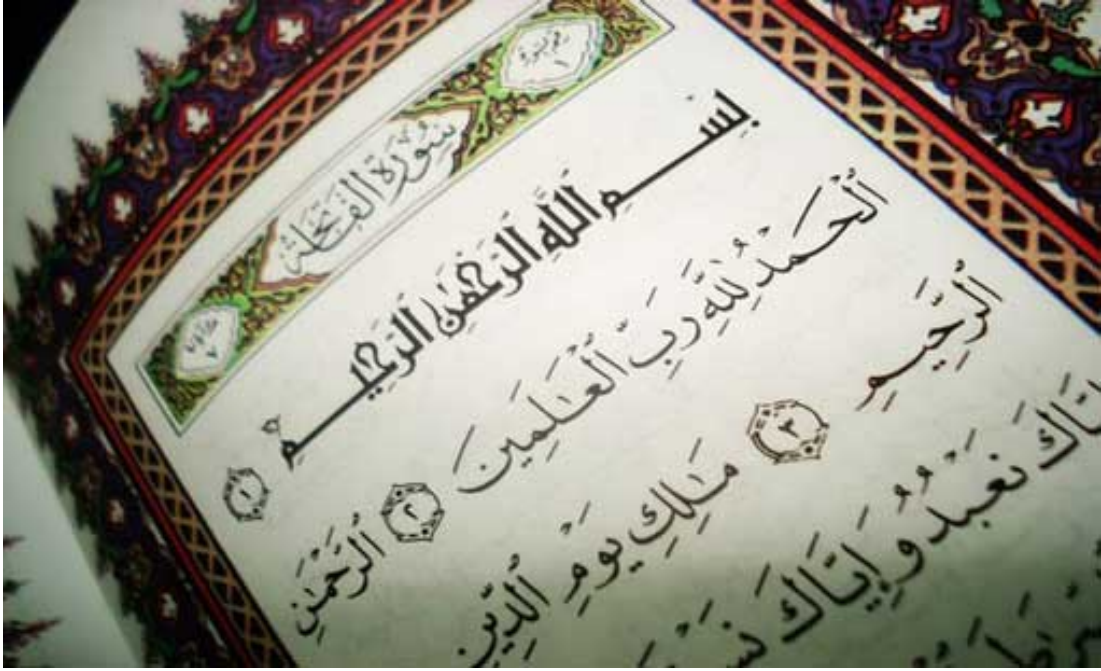 سُورَةُ الفَاتِحَةِ
بِسْمِ اللَّهِ الرَّحْمَٰنِ الرَّحِيمِ ١
الْحَمْدُ لِلَّهِ رَبِّ الْعَٰلَمِينَ ٢ الرَّحْمَٰنِ
الرَّحِيمِ ٣ مَٰلِكِ يَوْمِ الدِّينِ
نَعْبُدُ وَإِيَّاكَ